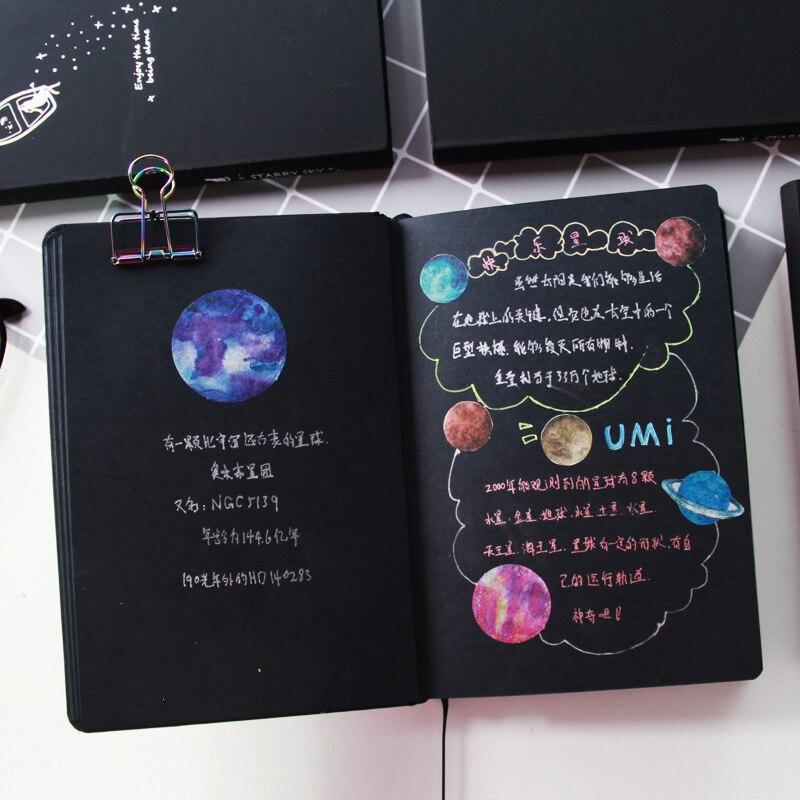 Enjoy the time
being alone
STARRY SKY
有一颗比宇宙还古老的星球.
奥米茄星团
又名: NGC 5139
年龄为144.6亿年
190光年外的HD 140283
快乐星球
虽然太阳是我们能够生活
在地球上的关键, 但它也是太空中的一个
巨型
能够 所有物料.
重量相当于33万个地球.
UMi
2000年能观测到的星球有8颗
水星. 金星. 地球. 火星. 土星. 木星.
天王星. 海王星. 星球有一定的形状, 有自
己的运行轨道.
神奇吧!!